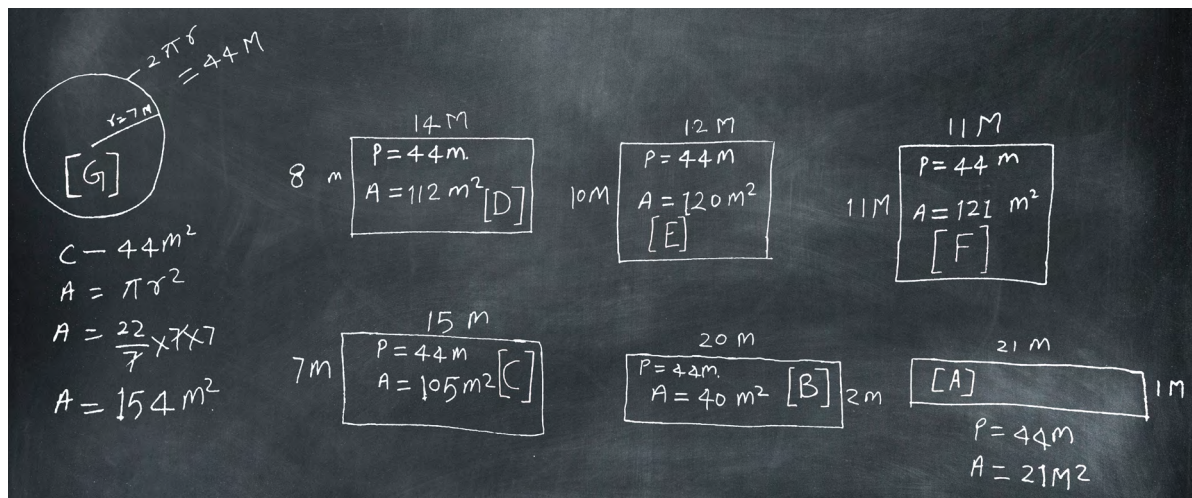 2πr
= 44 M
r=7M
[G]
C — 44m²
A = πr²
A = 22/7 x7x7
A = 154 m²
14 M
8 m
P=44m.
A =112 m² [D]
12 M
10M
P=44M
A = 120m²
[E]
11 M
11M
P=44 m
A=121 m²
[F]
15 m
7m
P=44m
A=105m² [C]
20 m
P=44m.
A=40 m² [B]
2m
21 m
[A]
1M
P=44m
A=21M2